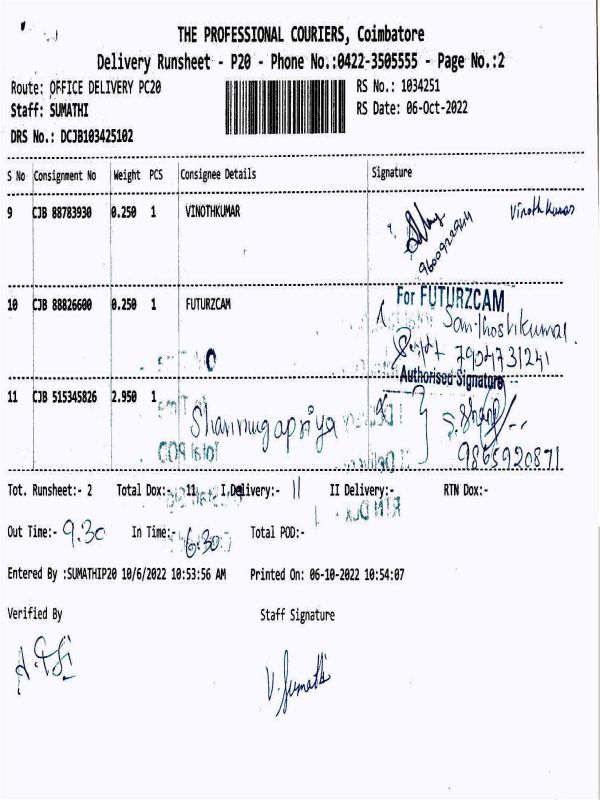 THE PROFESSIONAL COURIERS, Coimbatore
Delivery Runsheet - P20 - Phone No.:0422-3505555 - Page No.:2
Route: OFFICE DELIVERY PC20
RS No.: 1034251
Staff: SUMATHI
RS Date: 06-Oct-2022
DRS No.: DCJB103425102
S No Consignment No Weight PCS Consignee Details Signature
9 CJB 88783930 0.250 1 VINOTHKUMAR Vinoth kumar
10 CJB 88826600 0.250 1 FUTURZCAM For FUTURZCAM
Santhoshkumar.
7904731241
Authorised Signatore
11 CJB 515345826 2.950 1
Shanmugapriya
9865920871
Tot. Runsheet:- 2 Total Dox:- 11 I.Delivery:- 11 II Delivery:- RTN Dox:-
Out Time:- 9.30 In Time:- 6:30 Total POD:-
Entered By :SUMATHIP20 10/6/2022 10:53:56 AM Printed On: 06-10-2022 10:54:07
Verified By Staff Signature
V. Sumathi